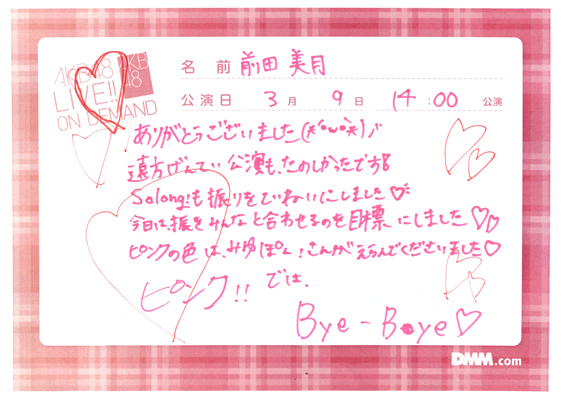 AKB48
LIVE!!
ON DEMAND
AKB
48
名 前 前田 美月
公演日 3月 9日 14:00 公演
ありがとうございました(*´ω`*)ﾉ
遠方げんてい公演も、たのしかったです
So long!も振りをていねいにしました♡
今日は、振をみんなと合わせるのを目標にしました♡♡
ピンクの色は、みゆぽん!さんがえらんでくださいました♡
ピンク!! では、
Bye-Boye♡
DMM.com